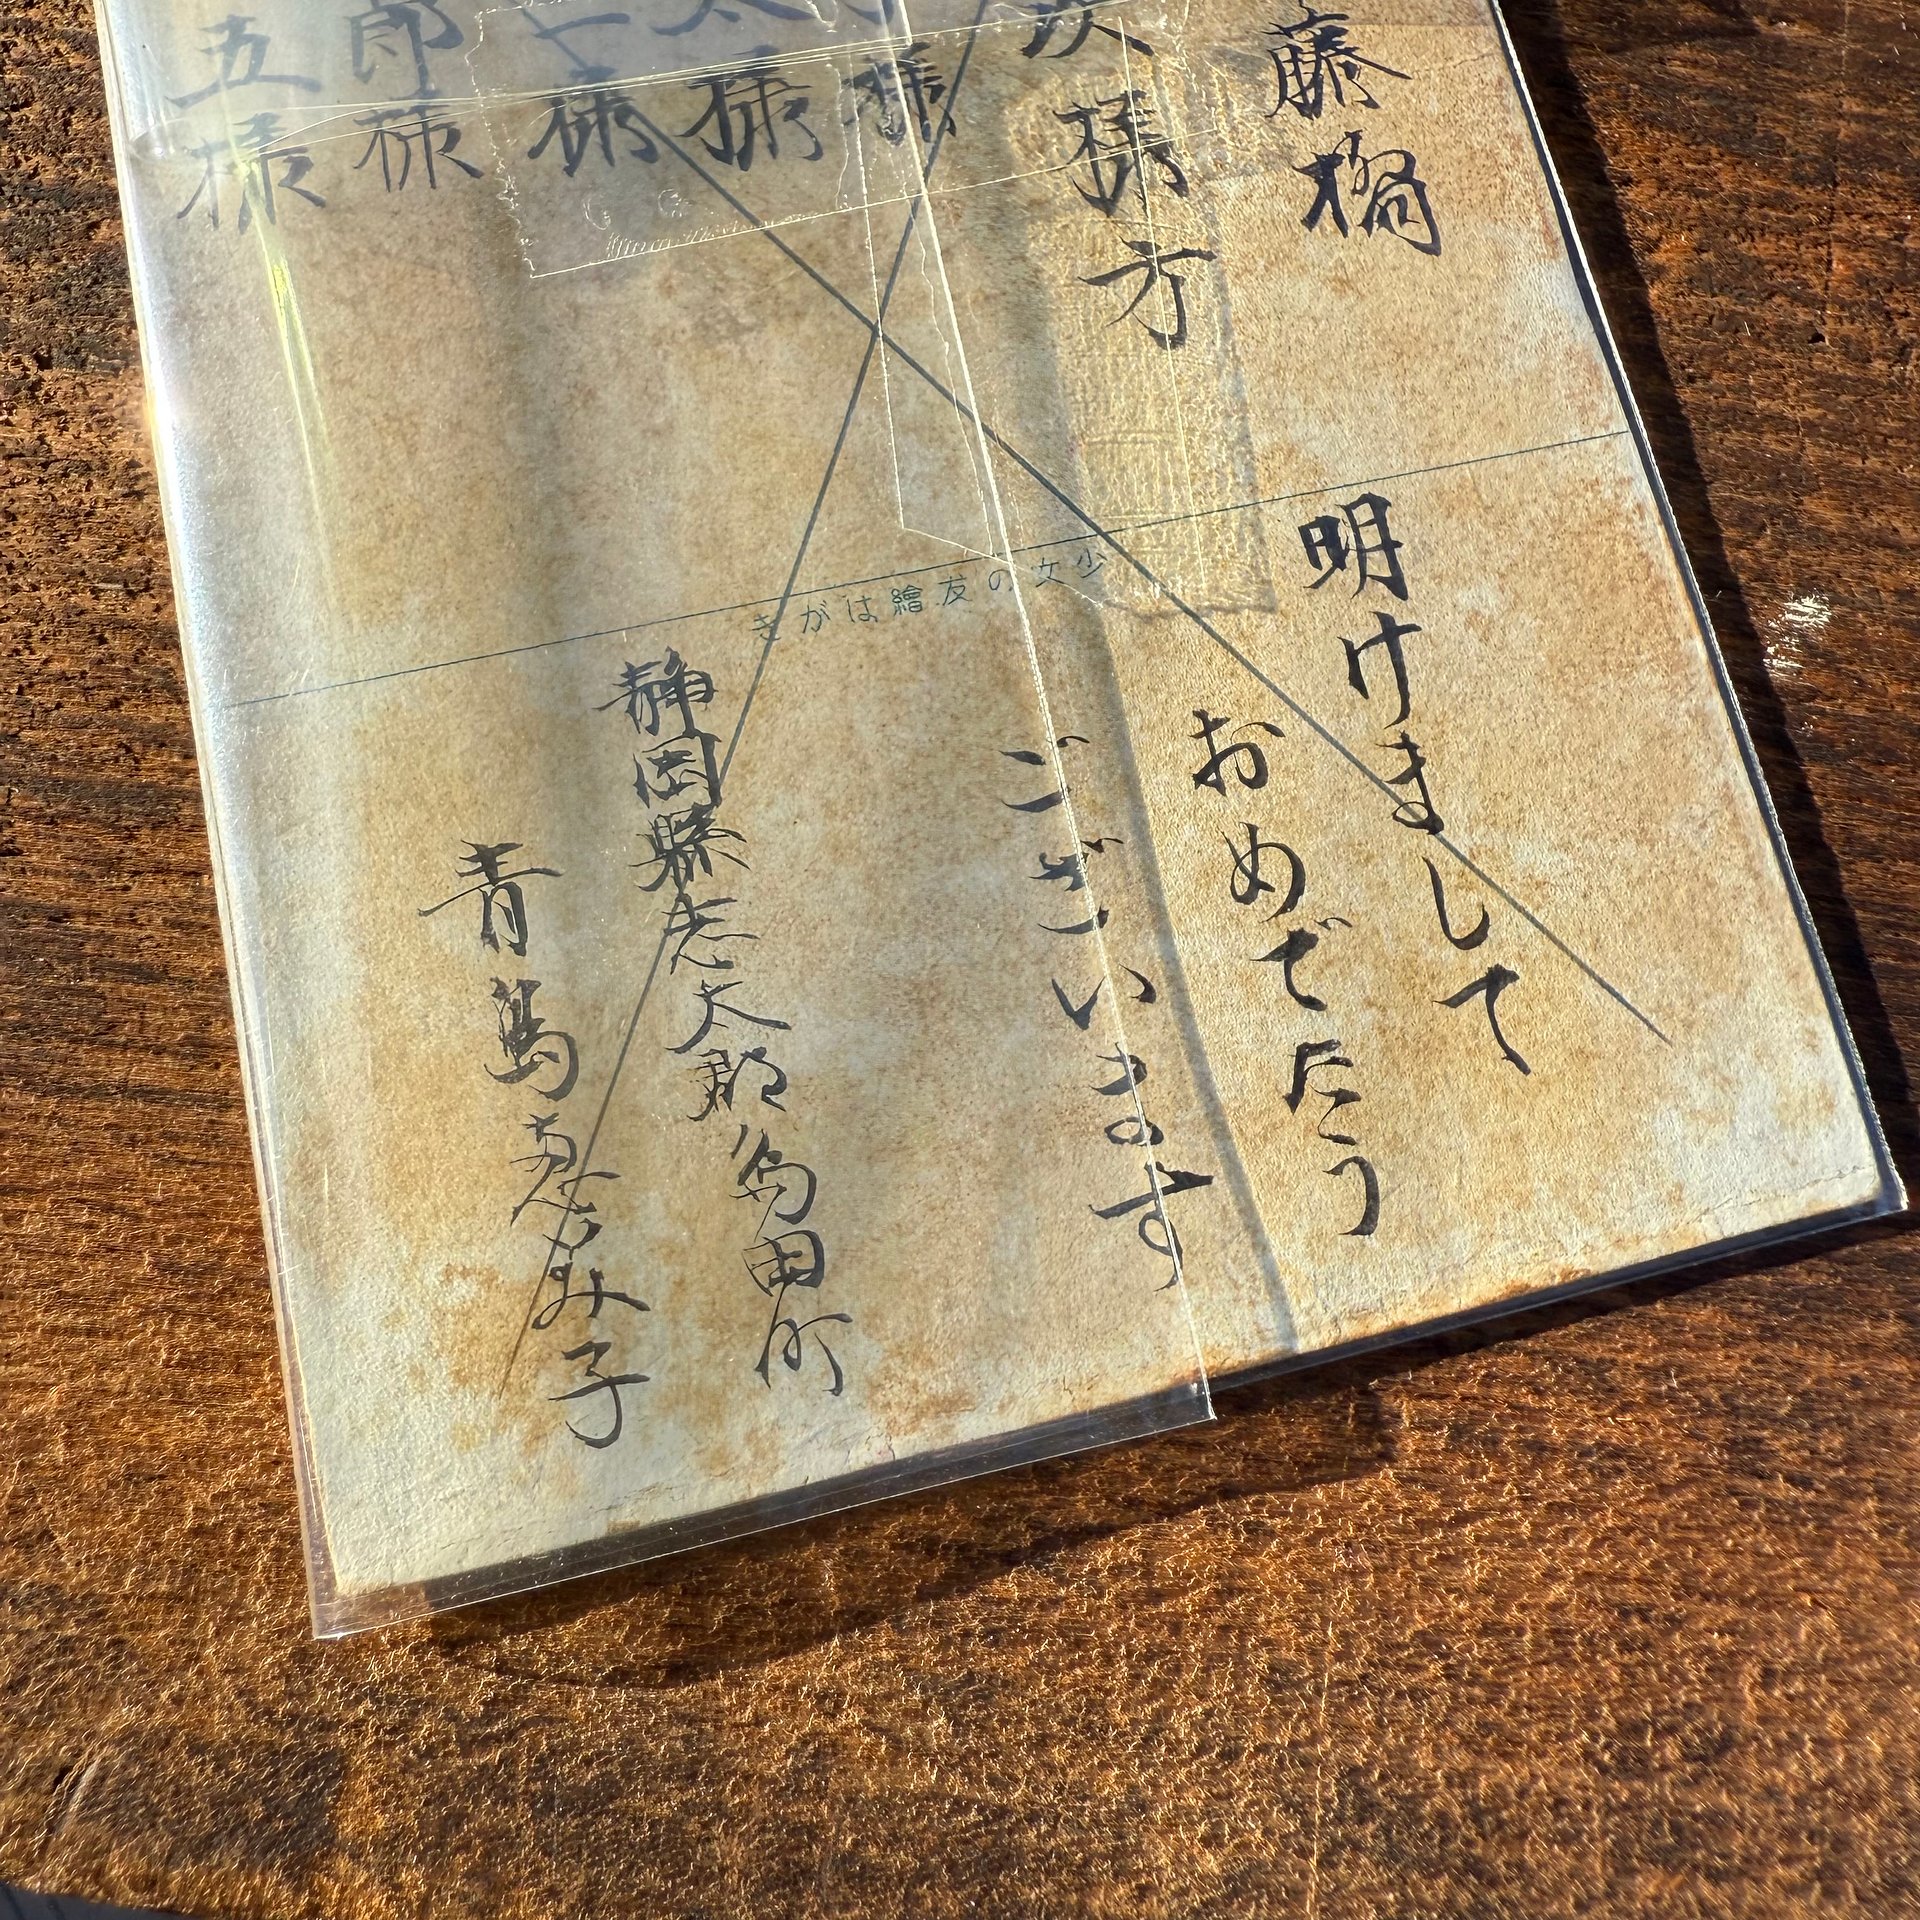 藤橘
次様方
様
太様
一様
郎様
五様
少女の友繪はがき
明けまして
おめでたう
ございます
静岡縣志太郡島田町
青島ゑみ子